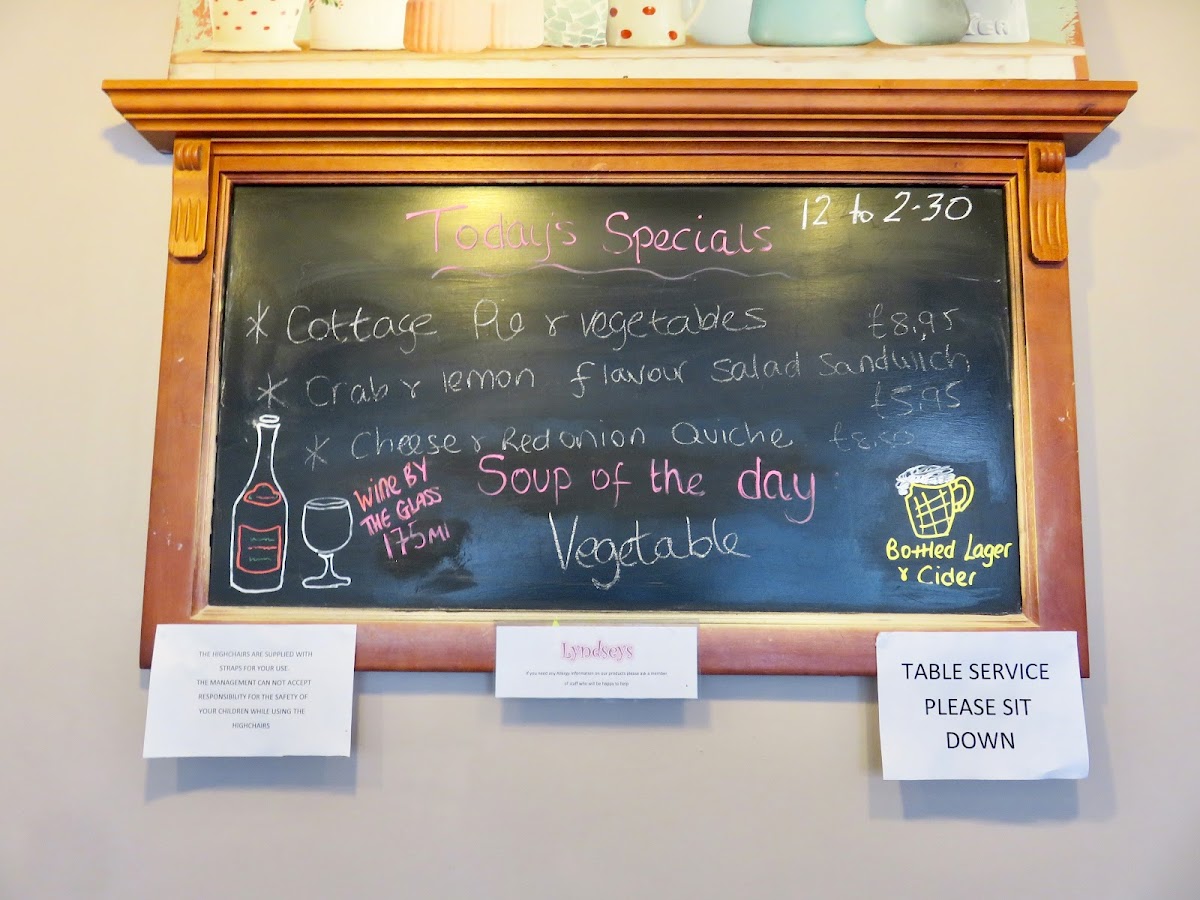 Today's Specials
12 to 2-30
* Cottage Pie & vegetables £8.95
* Crab & lemon flavour salad sandwich
£5.95
* Cheese & Red onion Quiche
Soup of the day
Vegetable
WINE BY
THE GLASS
175Ml
Bottled Lager
& Cider
THE HIGHCHAIRS ARE SUPPLIED WITH
STRAPS FOR YOUR USE.
THE MANAGEMENT CAN NOT ACCEPT
RESPONSIBILITY FOR THE SAFETY OF
YOUR CHILDREN WHILE USING THE
HIGHCHAIRS
Lyndseys
If you need any Allergy information on our products please ask a member
of staff who will be happy to help
TABLE SERVICE
PLEASE SIT
DOWN